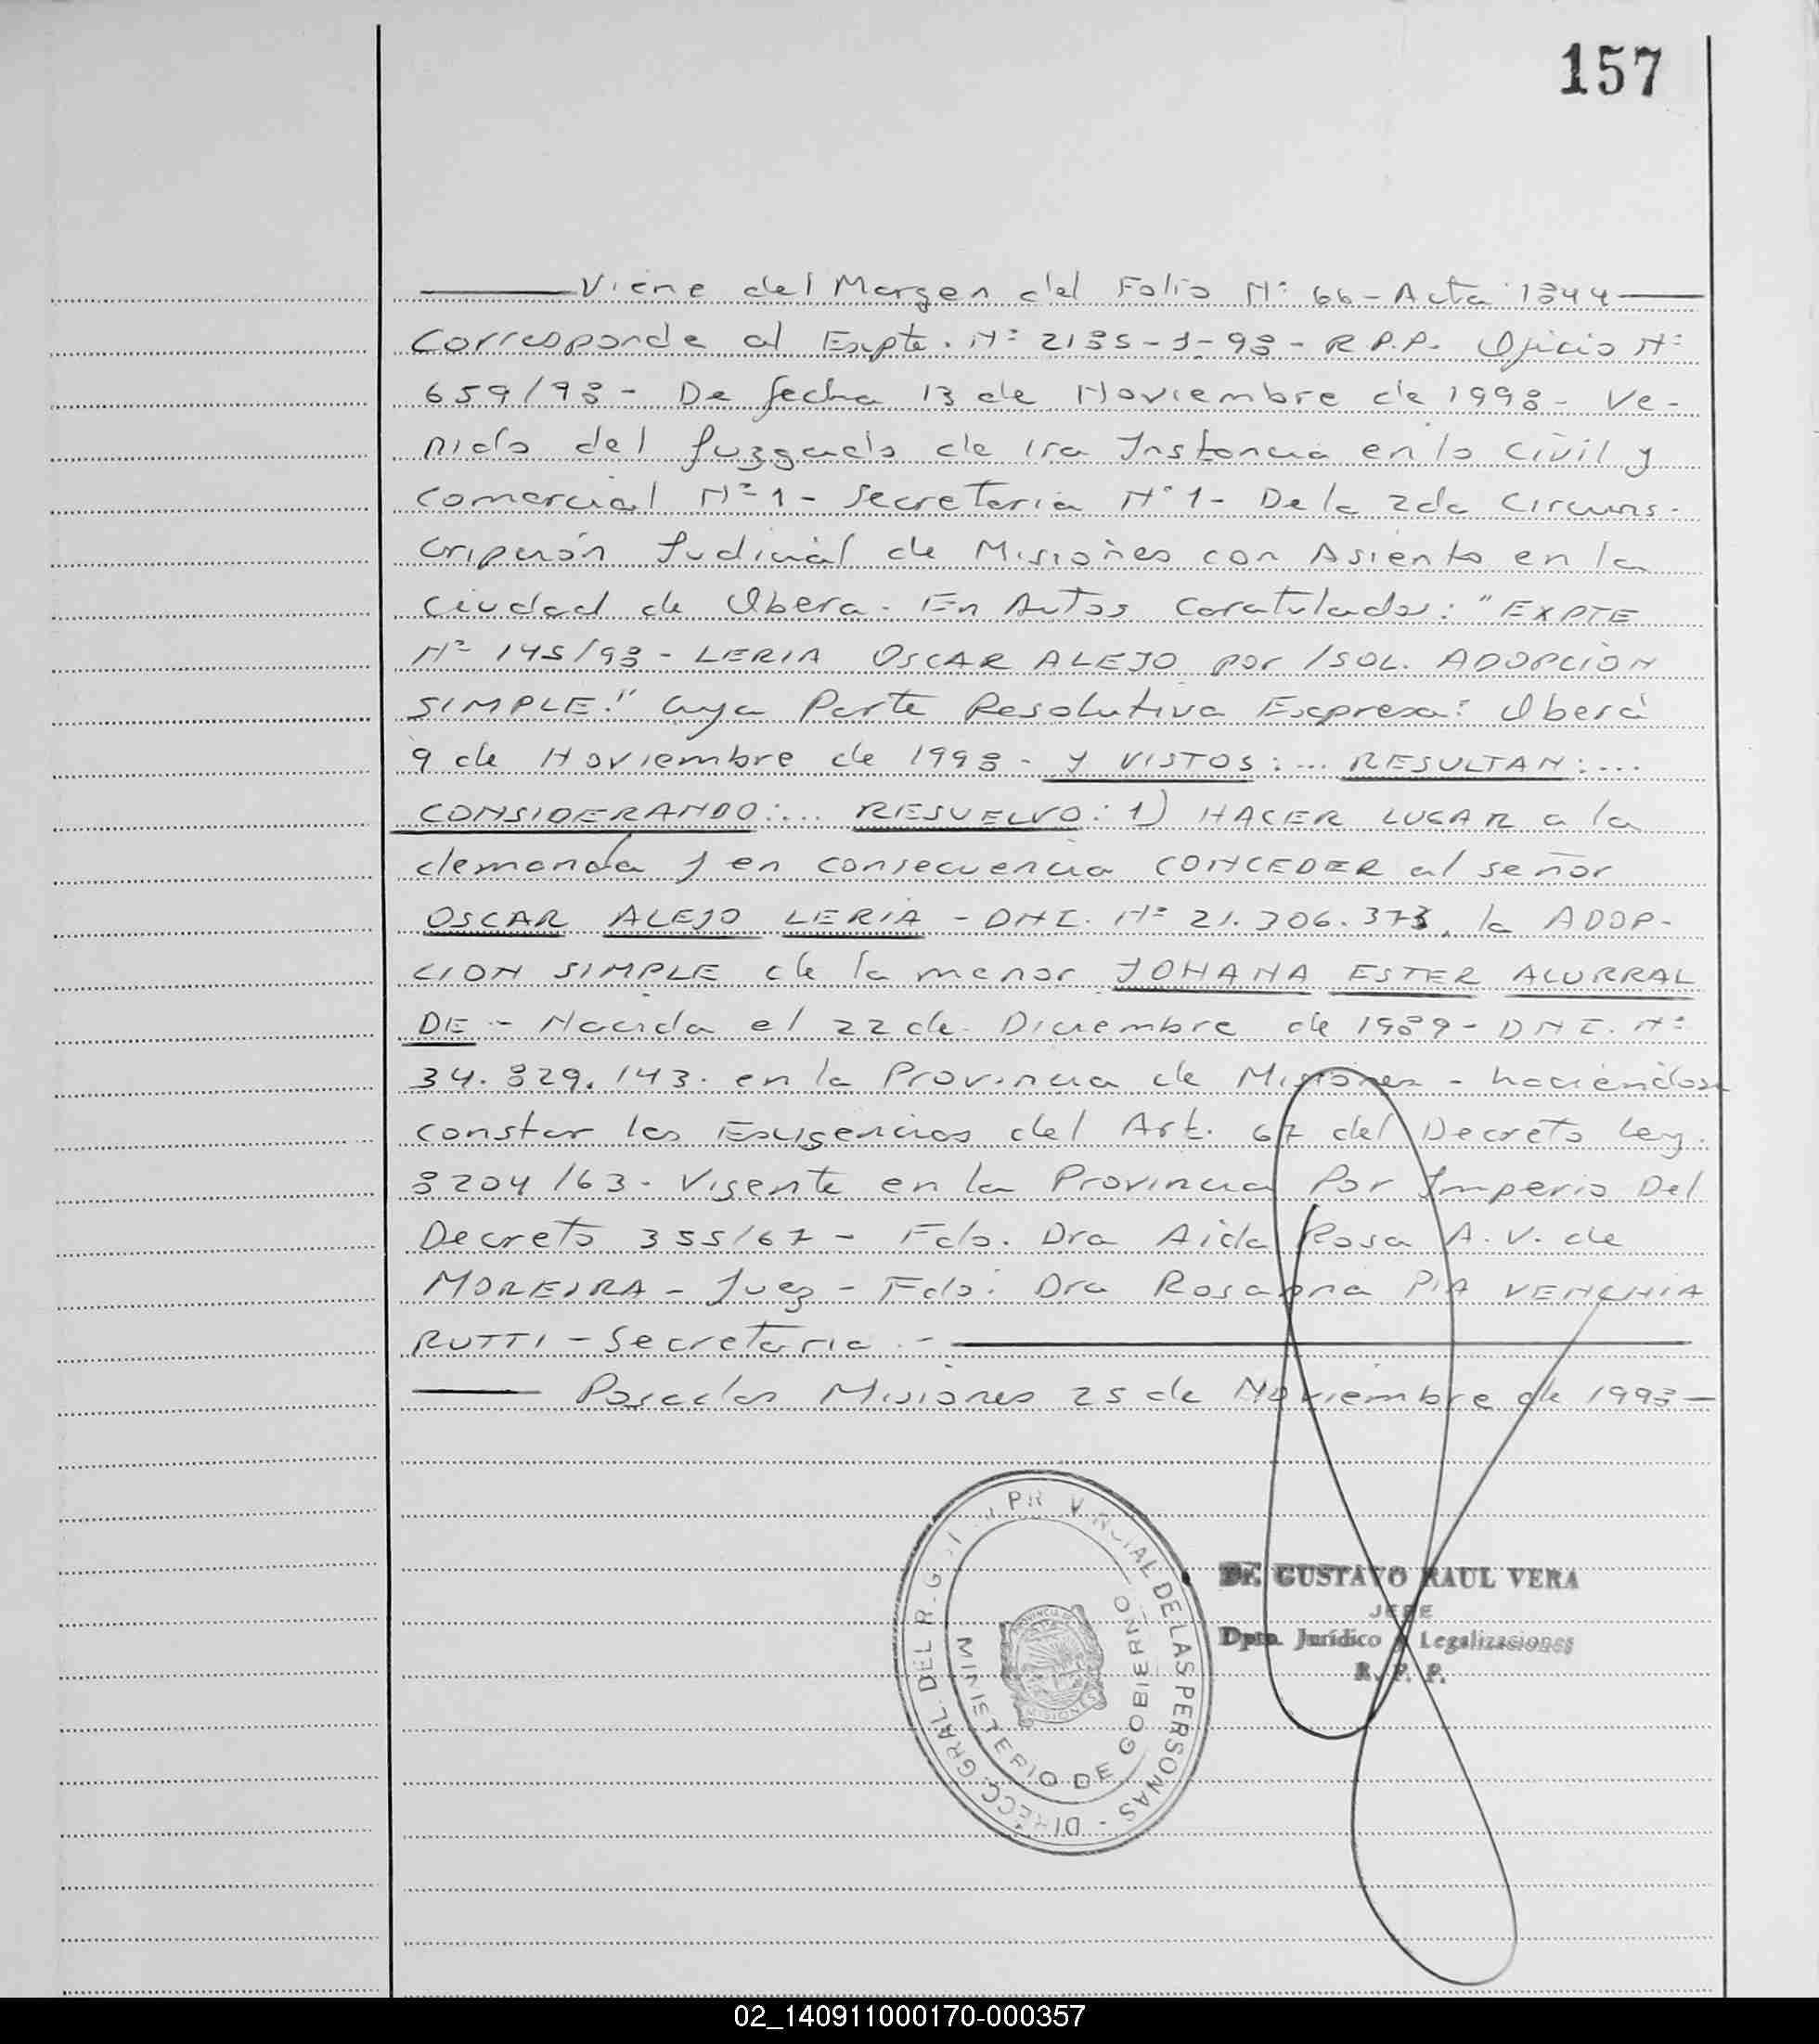 157
Viene del Margen del Folio Nº 66 - Acta 1844
Corresponde al Expte. Nº 2185-1-98 - R.P.P. Oficio Nº
659/98 - De fecha 13 de Noviembre de 1998 - Ve-
nido del Juzgado de 1ra Instancia en lo Civil y
Comercial Nº 1 - Secretaria Nº 1 - De la 2da Circuns-
cripción Judicial de Misiones con Asiento en la
Ciudad de Obera. En Autos Caratulados: "EXPTE
Nº 145/98 - LERIA OSCAR ALEJO por /SOL. ADOPCION
SIMPLE." Cuya Parte Resolutiva Expresa: Oberá
9 de Noviembre de 1998 - Y VISTOS: ... RESULTAN: ...
CONSIDERANDO: ... RESUELVO: 1) HACER LUGAR a la
demanda y en consecuencia CONCEDER al señor
OSCAR ALEJO LERIA - DNI. Nº 21.306.373, la ADOP-
CION SIMPLE de la menor JOHANA ESTER ALURRAL
DE - Nacida el 22 de Diciembre de 1989 - DNI. Nº
34.829.143. en la Provincia de Misiones - haciendose
constar las Exigencias del Art. 67 del Decreto Ley.
8204/63. Vigente en la Provincia Por Imperio Del
Decreto 355/67 - Fdo. Dra Aida Rosa A. V. de
MOREIRA - Juez - Fdo: Dra Rosanna PIA VENCHIA
RUTTI - Secretaria . -
Posadas Misiones 25 de Noviembre de 1998 -
DIRECC. GRAL. DEL R. PROVINCIAL DE LAS PERSONAS -
MINISTERIO DE GOBIERNO
PROVINCIA DE
MISIONES
Dr. GUSTAVO RAUL VERA
JEFE
Dpto. Jurídico y Legalizaciones
R. P. P.
02_140911000170-000357